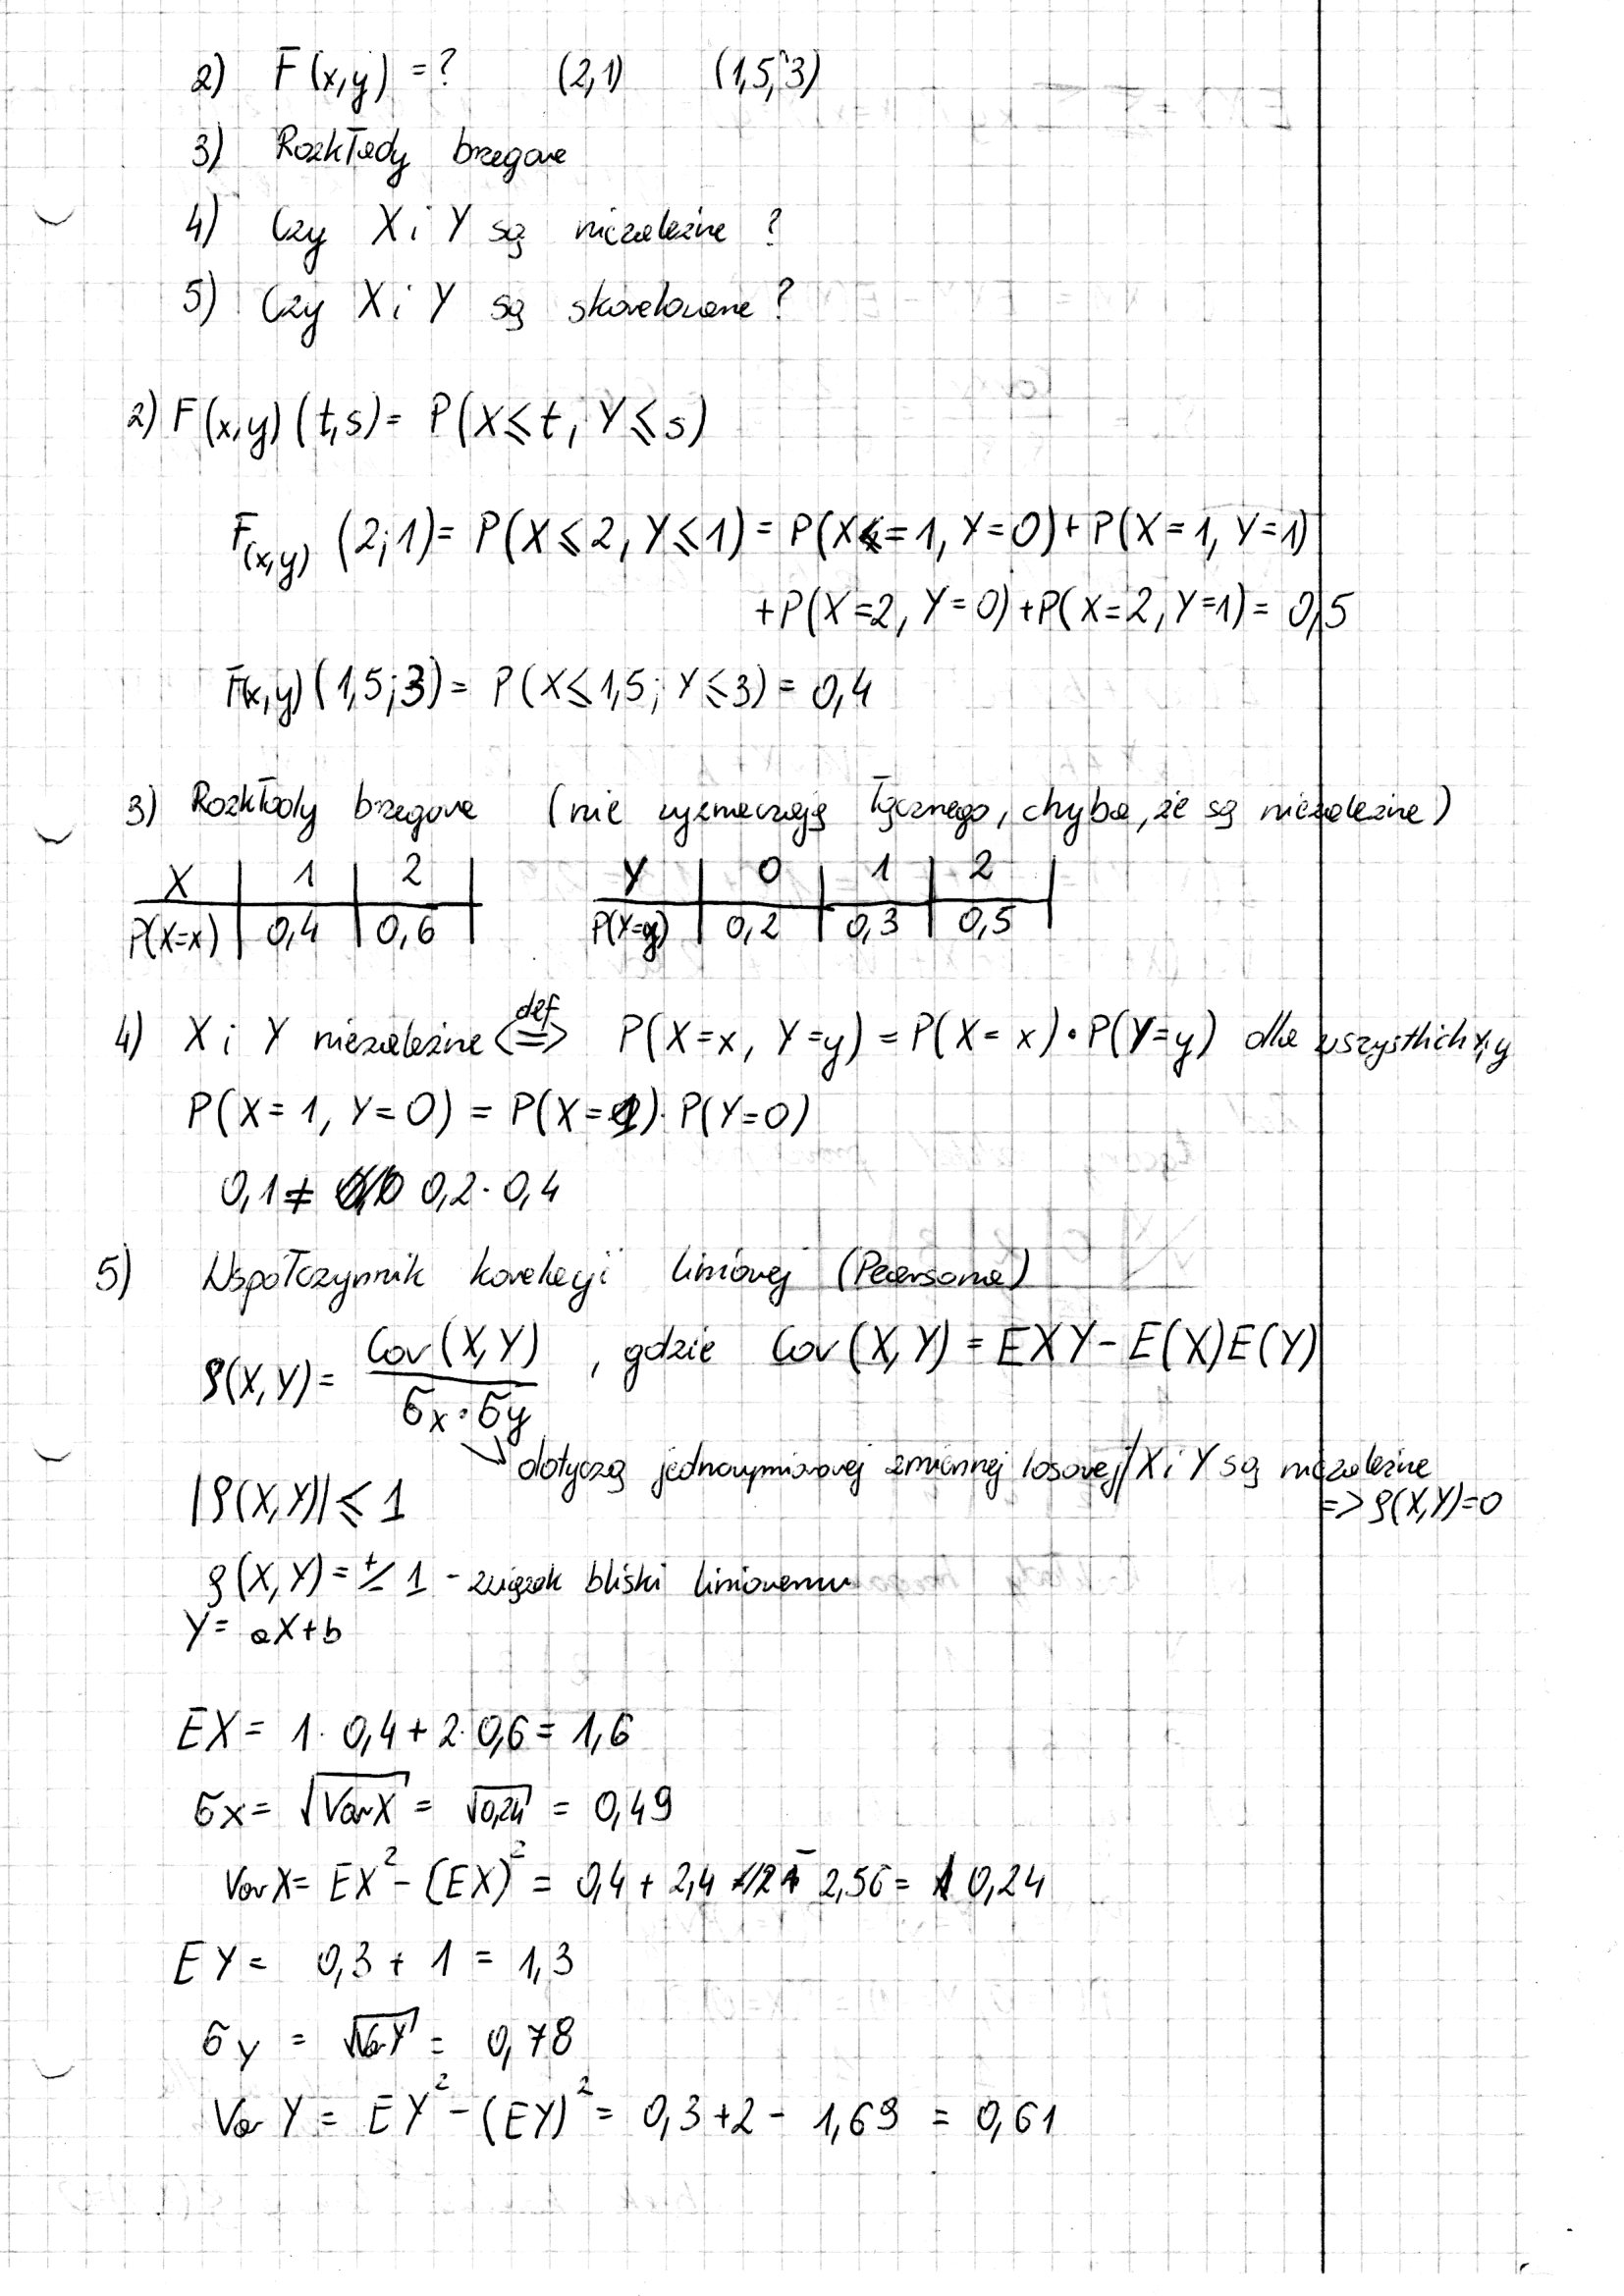 2) F(x,y) = ? (2,1) (1,5;3)
3) Rozkłady brzegowe
4) Czy X i Y są niezależne ?
5) Czy X i Y są skorelowane ?
2) F(x,y) (t,s) = P(X⩽t, Y⩽s)
F(x,y) (2;1) = P(X⩽2, Y⩽1) = P(X=1, Y=0) + P(X=1, Y=1)
+P(X=2, Y=0) + P(X=2, Y=1) = 0,5
F(x,y) (1,5;3) = P(X⩽1,5; Y⩽3) = 0,4
3) Rozkłady brzegowe (nie wyznaczają łącznego, chyba, że są niezależne)
X | 1 | 2 | Y | 0 | 1 | 2 |
P(X=x) | 0,4 | 0,6 | P(Y=y) | 0,2 | 0,3 | 0,5 |
4) X i Y niezależne <=> def P(X=x, Y=y) = P(X=x)·P(Y=y) dla wszystkich x,y
P(X=1, Y=0) = P(X=1)·P(Y=0)
0,1 ≠ 0,2·0,4
5) Współczynnik korelacji liniowej (Pearsona)
ρ(X,Y) = Cov(X,Y) / σx·σy , gdzie Cov(X,Y) = EXY - E(X)E(Y)
↘ dotyczą jednowymiarowej zmiennej losowej / X i Y są niezależne
|ρ(X,Y)| ⩽ 1 => ρ(X,Y)=0
ρ(X,Y) = +/- 1 - związek bliski liniowemu
Y = aX+b
EX = 1·0,4 + 2·0,6 = 1,6
σx = √VarX = √0,24 = 0,49
VarX = EX² - (EX)² = 0,4 + 2,4 - 2,56 = 0,24
EY = 0,3 + 1 = 1,3
σy = √VarY = 0,78
Var Y = EY² - (EY)² = 0,3+2 - 1,69 = 0,61